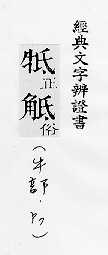 經典文字辨證書
牴正觝俗
(牛部·